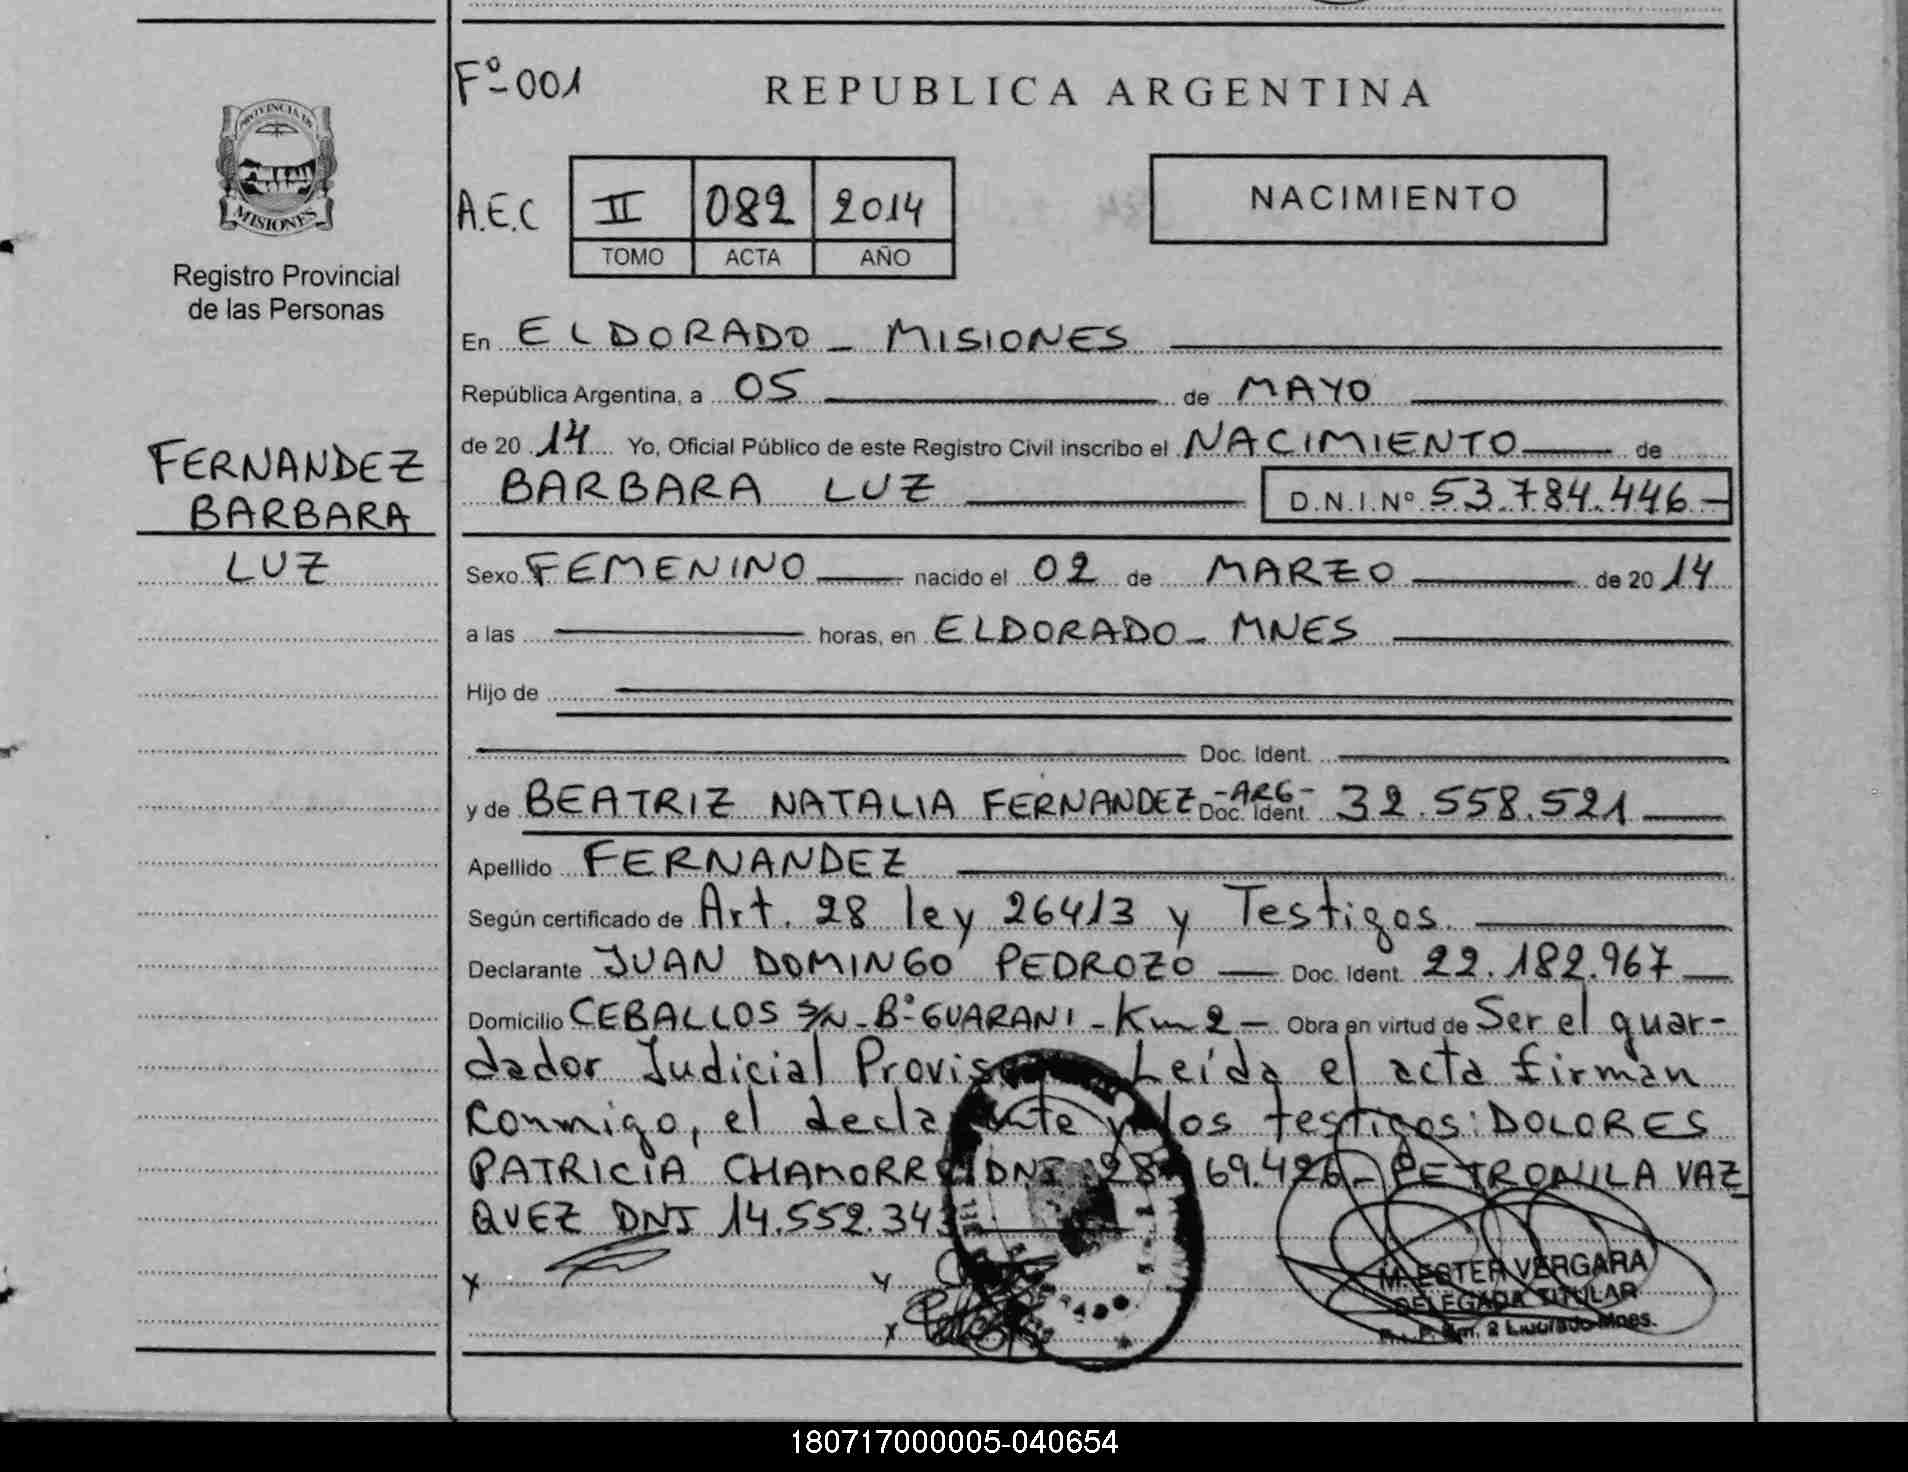 Fº-001
REPUBLICA ARGENTINA
PROVINCIA DE
MISIONES
Registro Provincial
de las Personas
A.E.C II 082 2014
TOMO ACTA AÑO
NACIMIENTO
En ELDORADO - MISIONES
República Argentina, a 05 de MAYO
de 20 14 Yo, Oficial Público de este Registro Civil inscribo el NACIMIENTO de
BARBARA LUZ D.N.I.Nº 53.784.446-
FERNANDEZ
BARBARA
LUZ
Sexo FEMENINO nacido el 02 de MARZO de 20 14
a las horas, en ELDORADO - MNES
Hijo de
Doc. Ident.
y de BEATRIZ NATALIA FERNANDEZ -ARG- Doc. Ident. 32.558.521
Apellido FERNANDEZ
Según certificado de Art. 28 ley 26413 y Testigos.
Declarante JUAN DOMINGO PEDROZO Doc. Ident. 22.182.967
Domicilio CEBALLOS S/N - Bº GUARANI - Km 2 - Obra en virtud de Ser el guar-
dador Judicial Leída el acta firman
conmigo, el declarante y los testigos: DOLORES
PATRICIA CHAMORRO DNI 69.426 - PETRONILA VAZ
QUEZ DNI 14.552.343
x
x
M. ESTER VERGARA
DELEGADA TITULAR
180717000005-040654